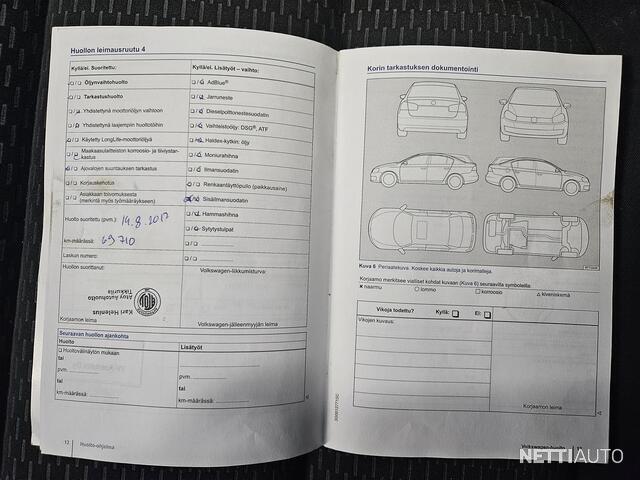 Huollon leimausruutu 4
Kyllä/ei. Suoritettu:
Kyllä/ei. Lisätyöt – vaihto:
Öljynvaihtohuolto
AdBlue®
Tarkastushuolto
Jarruneste
Yhdistettynä moottoriöljyn vaihtoon
Dieselpolttonestesuodatin
Yhdistettynä laajempiin huoltotöihin
Vaihteistoöljy: DSG®, ATF
Käytetty LongLife-moottoriöljyä
Haldex-kytkin: öljy
Maakaasulaitteiston korroosio- ja tiiviystarkastus
Moniurahihna
Ajovalojen suuntauksen tarkastus
Ilmansuodatin
Korjauskehotus
Renkaantäyttöpullo (paikkausaine)
Asiakkaan toivomuksesta
(merkintä myös työmääräykseen)
Sisäilmansuodatin
Hammashihna
Huolto suoritettu (pvm.) 14.8.2017
Sytytystulpat
km-määrässä: 69 710
Laskun numero:
Huollon suorittanut:
Volkswagen-liikkumisturva:
Kari Helenius
Atoy Autohuolto
Tikkurila
Korjaamon leima
Volkswagen-jälleenmyyjän leima
Seuraavan huollon ajankohta
Huolto
Lisätyöt
Huoltovälinäytön mukaan
tai
pvm.
pvm.
tai
tai
km-määrässä:
km-määrässä:
12 Huolto-ohjelma
Korin tarkastuksen dokumentointi
Kuva 6 Periaatekuva. Koskee kaikkia autoja ja korimalleja.
Korjaamo merkitsee vialliset kohdat kuvaan (Kuva 6) seuraavilla symboleilla:
× naarmu
○ lommo
□ korroosio
△ kiveniskemä
Vikoja todettu?
Kyllä:
Ei:
Vikojen kuvaus:
Korjaamon leima
Volkswagen-huolto
NETTIAUTO